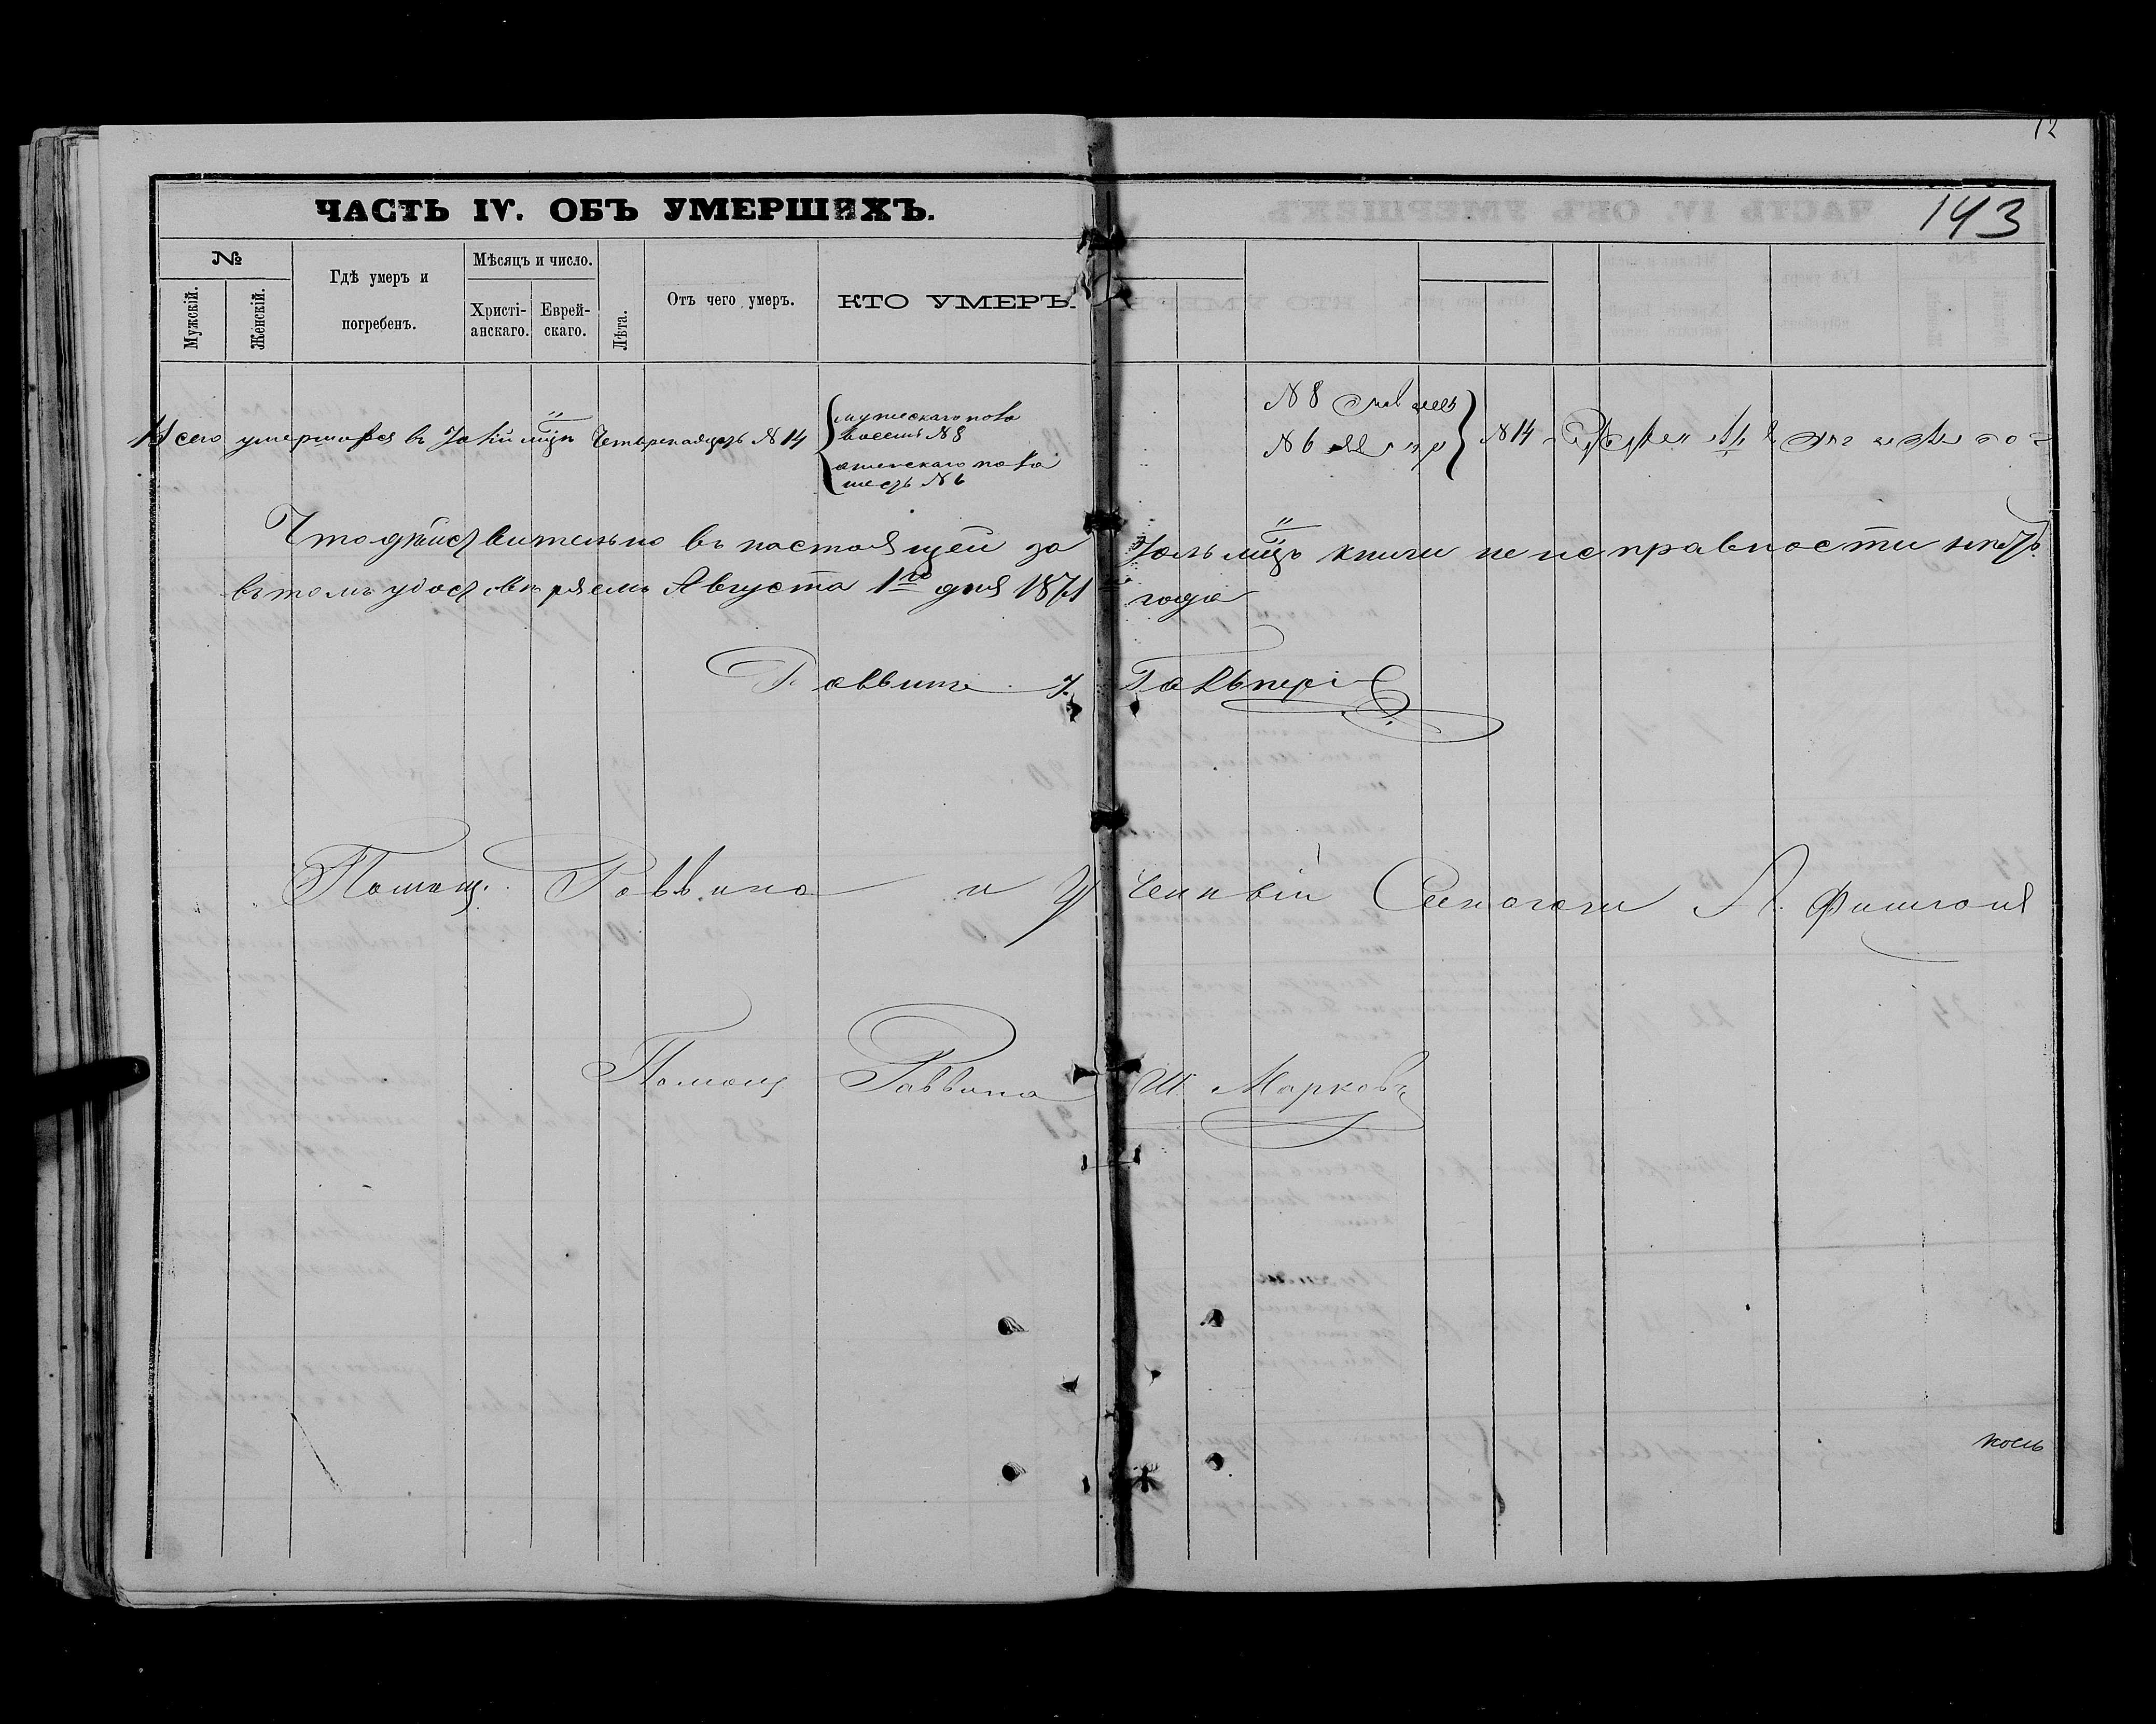 12
ЧАСТЬ IV. ОБЪ УМЕРШИХЪ.
143
№
Мужскій.
Женскій.
Гдѣ умеръ и
погребенъ.
Мѣсяцъ и число.
Христі-
анскаго.
Еврей-
скаго.
Лѣта.
Отъ чего умеръ.
КТО УМЕРЪ.
Всего умершихся въ Юлѣ мцѣ Четырнадцать № 14
мужескаго пола
восемь № 8
женскаго пола
шесть № 6
№ 8
№ 6
№ 14
Что дѣйствительно въ настоящей за Юль мцъ книги не исправности нетъ.
въ томъ удостовѣряемъ Августа 1го дня 1871 года
Раввинъ Гальперн
Помощ. Раввина и Ученый Синагоги Л. Фишгоил
Помощ Раввина Ш. Марковъ